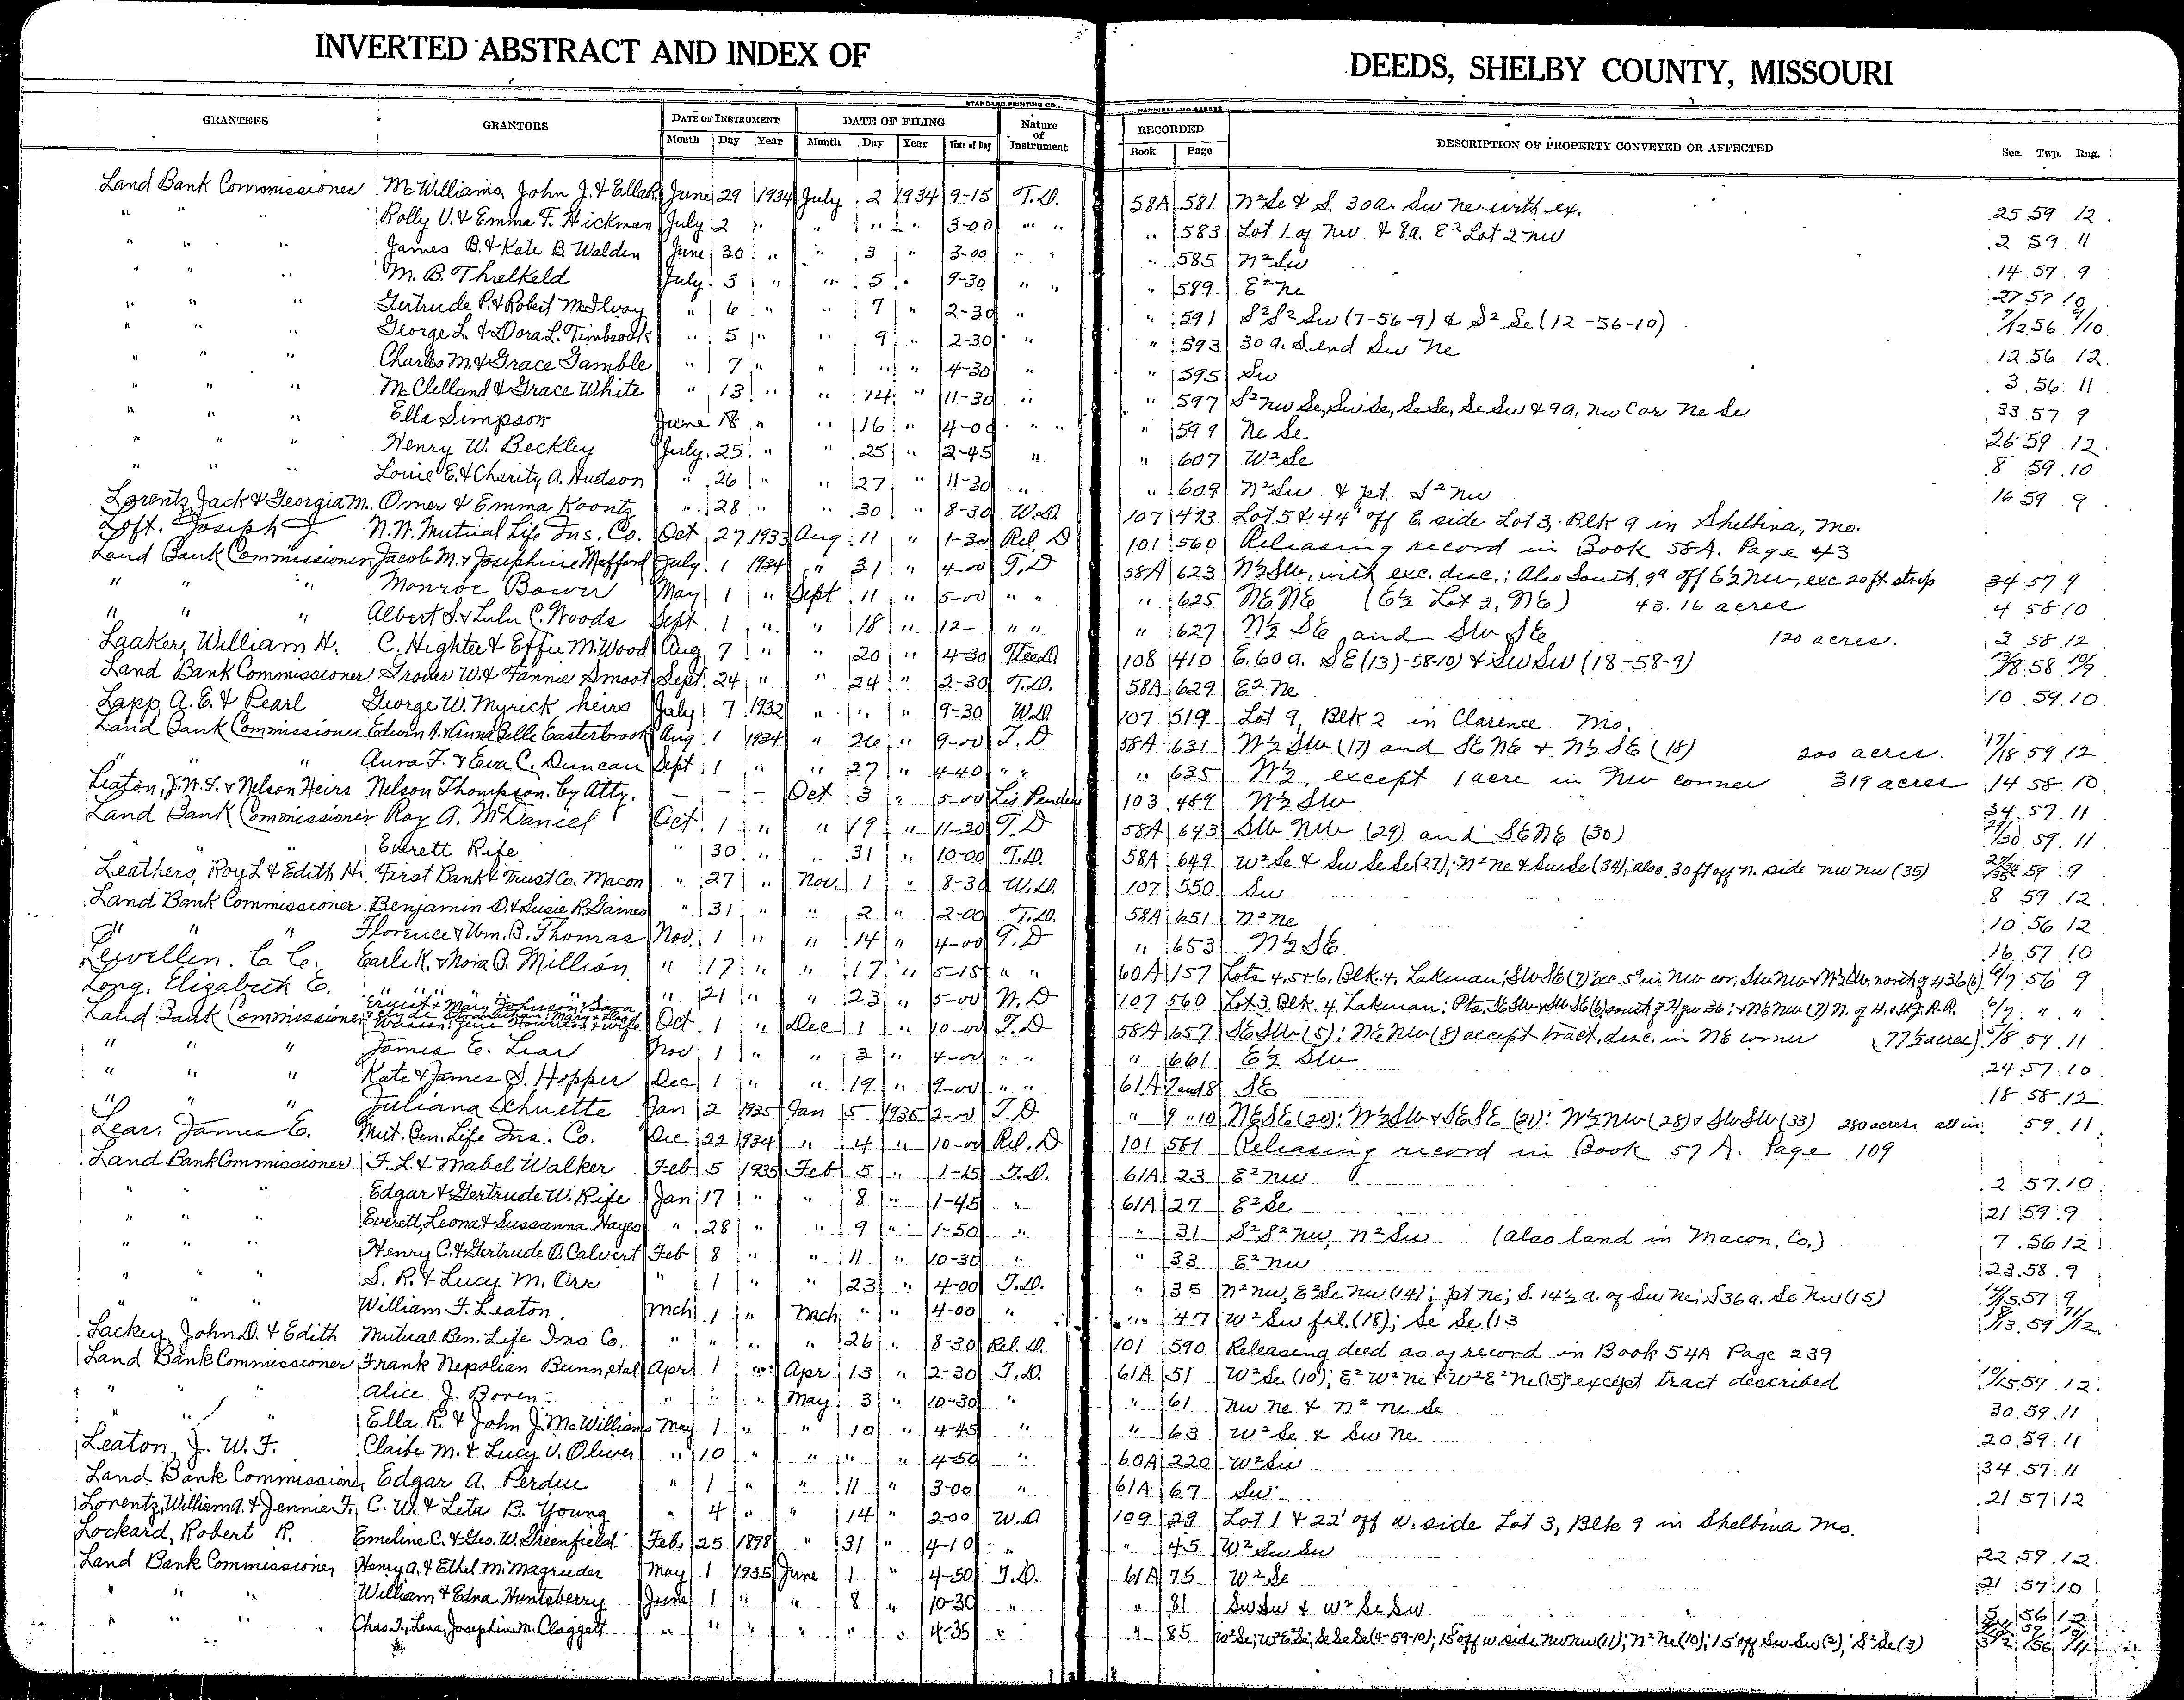 INVERTED ABSTRACT AND INDEX OF DEEDS, SHELBY COUNTY, MISSOURI
STANDARD PRINTING CO.
GRANTEES GRANTORS DATE OF INSTRUMENT DATE OF FILING Nature of Instrument RECORDED DESCRIPTION OF PROPERTY CONVEYED OR AFFECTED Sec. Twp. Rng.
Month Day Year Month Day Year Time of Day Book Page
Land Bank Commissioner McWilliams, John J. & Ella R. June 29 1934 July 2 1934 9-15 T.D. 58A 581 N²Se & S. 30a. Sw Ne with ex. 25 59 12
" " " Rolly V. & Emma F. Hickman July 2 " " " " 3-00 " " " 583 Lot 1 of Nw & 8a. E² Lot 2 Nw 2 59 11
" " " James B. & Kate B. Walden June 30 " " 3 " 3-00 " " " 585 N²Sw 14 57 9
" " " M. B. Threlkeld July 3 " " 5 " 9-30 " " " 589 E²Ne 27 57 10
" " " Gertrude P. & Robert McIlvoy " 6 " " 7 " 2-30 " " 591 S²S²Sw (7-56-9) & S²Se (12-56-10) 7/12 56 9/10
" " " George L. & Dora L. Timbrook " 5 " " 9 " 2-30 " " 593 30a. S. end Sw Ne 12 56 12
" " " Charles M. & Grace Gamble " 7 " " " " 4-30 " " 595 Sw 3 56 11
" " " McClelland & Grace White " 13 " " 14 " 11-30 " " 597 S²Nw Se, Sw Se, Se Se, Se Sw & 9a. Nw Cor Ne Se 33 57 9
" " " Ella Simpson June 18 " " 16 " 4-00 " " " 599 Ne Se 26 59 12
" " " Henry W. Beckley July 25 " " 25 " 2-45 " " 607 W²Se 8 59 10
" " " Louie E. & Charity A. Hudson " 26 " " 27 " 11-30 " " 609 N²Sw & pt. S²Nw 16 59 9
Lorentz, Jack & Georgia M. Omer & Emma Koontz " 28 " " 30 " 8-30 W.D. 107 493 Lot 5 & 44' off E side Lot 3, Blk 9 in Shelbina, Mo.
Loft. Joseph J. N.W. Mutual Life Ins. Co. Oct 27 1933 Aug 11 " 1-30 Rel. D 101 560 Releasing record in Book 58A. Page 43
Land Bank Commissioner Jacob M. & Josephine Mefford July 1 1934 " 31 " 4-00 T.D 58A 623 N½SW, with exc. desc.: Also South 9a off E½ NW, exc 20 ft strip 34 57 9
" " " Monroe Bower May 1 " Sept 11 " 5-00 " " " 625 NENE (E½ Lot 2, NE) 43.16 acres 4 58 10
" " " Albert S. & Lulu C. Woods Sept 1 " " 18 " 12- " " " 627 N½ SE and SW SE 120 acres. 3 58 12
Laaker, William H. C. Hightee & Effie M. Wood Aug 7 " " 20 " 4-30 108 410 E. 60a. SE (13)-58-10) & SW SW (18-58-9) 13/18 58 10/9
Land Bank Commissioner Grover W. & Fannie Smoot Sept 24 " " 24 " 2-30 T.D. 58A 629 E² Ne 10 59 10
Lapp, A. E. & Pearl George W. Myrick heirs July 7 1932 " " " 9-30 W.D. 107 519 Lot 9, Blk 2 in Clarence Mo.
Land Bank Commissioner Edwin A. & Anna Belle Easterbrook Aug. 1 1934 " 26 " 9-00 T.D 58A 631 N½ SW (17) and SE NE & N½ SE (18) 200 acres. 17/18 59 12
" " Aura F. & Eva C. Duncan Sept 1 " " 27 " 4-40 " " " 635 W½ except 1 acre in NW corner 319 acres 14 58 10
Leaton, J.W.F. & Nelson Heirs Nelson Thompson. by Atty. - - - Oct 3 " 5-00 Lis Pendens 103 489 W½ SW 34 57 11
Land Bank Commissioner Roy A. McDaniel Oct 1 " " 19 " 11-30 T.D 58A 643 SW NW (29) and SENE (30) 29/30 59 11
" " Everett Rife " 30 " " 31 " 10-00 T.D. 58A 649 W²Se & Sw Se Se (27); N²Ne & Sw Se (34); also 30 ft off n. side Nw Nw (35) 59 9
Leathers, Roy L & Edith H. First Bank & Trust Co. Macon " 27 " Nov. 1 " 8-30 W.D. 107 550 Sw 8 59 12
Land Bank Commissioner Benjamin D. & Susie R. Gaines " 31 " " 2 " 2-00 T.D. 58A 651 N²Ne 10 56 12
" " " Florence & Wm. B. Thomas Nov. 1 " " 14 " 4-00 T.D " 653 N½ SE 16 57 10
Lewellen. C. C. Earle K. & Nora B. Million " 17 " " 17 " 5-15 " " 60A 157 Lots 4, 5 & 6, Blk. 4, Lakenan; SW SE (7) exc. 5a in NW cor, SW NW & N½ SW, north of #36 (6) 6/7 56 9
Long. Elizabeth E. " " " " " 21 " " 23 " 5-00 W.D 107 560 Lot 3 Blk. 4. Lakenan: Pts. SE SW & SW SE (6) south of Hgw 36: & NE NW (7) N. of H. & St J. R.R. 6/7 " "
Land Bank Commissioner Oct 1 " Dec 1 " 10-00 T.D 58A 657 SESW (5); NE NW (8) except tract desc. in NE corner (77½ acres) 5/8 59 11
" " " James E. Lear Nov 1 " " 3 " 4-00 " " " 661 E½ SW 24 57 10
" " " Kate & James S. Hopper Dec 1 " " 19 " 9-00 " " 61A 7 and 8 SE 18 58 12
" " " Juliana Schuette Jan 2 1935 Jan 5 1935 2-00 T.D " 9 " 10 NESE (20): W½ SW & SESE (21): W½ NW (28) & SW SW (33) 280 acres all in 59 11
Lear. James E. Mut. Ben. Life Ins. Co. Dec 22 1934 " 4 " 10-00 Rel. D 101 581 Releasing record in Book 57A. Page 109
Land Bank Commissioner F. L. & Mabel Walker Feb 5 1935 Feb 5 " 1-15 T.D. 61A 23 E²Nw 2 57 10
" " " Edgar & Gertrude W. Rife Jan 17 " " 8 " 1-45 " 61A 27 E²Se 21 59 9
" " " Everett, Leona & Sussanna Hayes " 28 " " 9 " 1-50 " " 31 S²S²Nw, N²Sw (also land in Macon, Co.) 7 56 12
" " " Henry C. & Gertrude O. Calvert Feb 8 " " 11 " 10-30 " " 33 E²Nw 23 58 9
" " " S. R. & Lucy M. Orr " 1 " " 23 " 4-00 T.D. " 35 N²Nw, E²Se Nw (14); pt Ne; S. 14½ a. of Sw Ne; S 36a. Se Nw (15) 14/15 57 9
" " " William F. Leaton Mch 1 " Mch " " 4-00 " " 47 W²Sw frl. (18); Se Se (13 18/13 59 11/12
Lackey, John D. & Edith Mutual Ben. Life Ins Co. " " " " 26 " 8-30 Rel. D. 101 590 Releasing deed as of record in Book 54A Page 239
Land Bank Commissioner Frank Nepolian Bunn, etal Apr 1 " Apr 13 " 2-30 T.D. 61A 51 W²Se (10); E²W²Ne & W²E²Ne (15) except tract described 10/15 57 12
" " " Alice J. Boren " " " May 3 " 10-30 " " 61 Nw Ne & N² Ne Se 30 59 11
" " " Ella R. & John J. McWilliams May 1 " " 10 " 4-45 " " 63 W²Se & Sw Ne 20 59 11
Leaton, J. W. F. Claibe M. & Lucy V. Oliver " 10 " " " " 4-50 " 60A 220 W²Sw 34 57 11
Land Bank Commissioner Edgar A. Perdue " 1 " " 11 " 3-00 " 61A 67 Sw 21 57 12
Lorentz, William A. & Jennie F. C. W. & Leta B. Young " 4 " " 14 " 2-00 W.D 109 29 Lot 1 & 22' off w. side Lot 3, Blk 9 in Shelbina Mo.
Lockard, Robert R. Emeline C. & Geo. W. Greenfield Feb. 25 1898 " 31 " 4-10 " " 45 W²Sw Sw 22 59 12
Land Bank Commissioner Henry A. & Ethel M. Magruder May 1 1935 June 1 " 4-50 T.D. 61A 75 W²Se 21 57 10
" " " William & Edna Huntsberry June 1 " " 8 " 10-30 " " 81 Sw Sw & W² Se Sw 5 56 12
" " " Chas. T., Lena, Josephine M. Claggett " " " " " " 4-35 " " 85 W²Se; W²E²Se; Se Se Se (4-59-10); 15' off w. side Nw Nw (11); N²Ne (10); 15' off Sw Sw (2); S²Se (3)